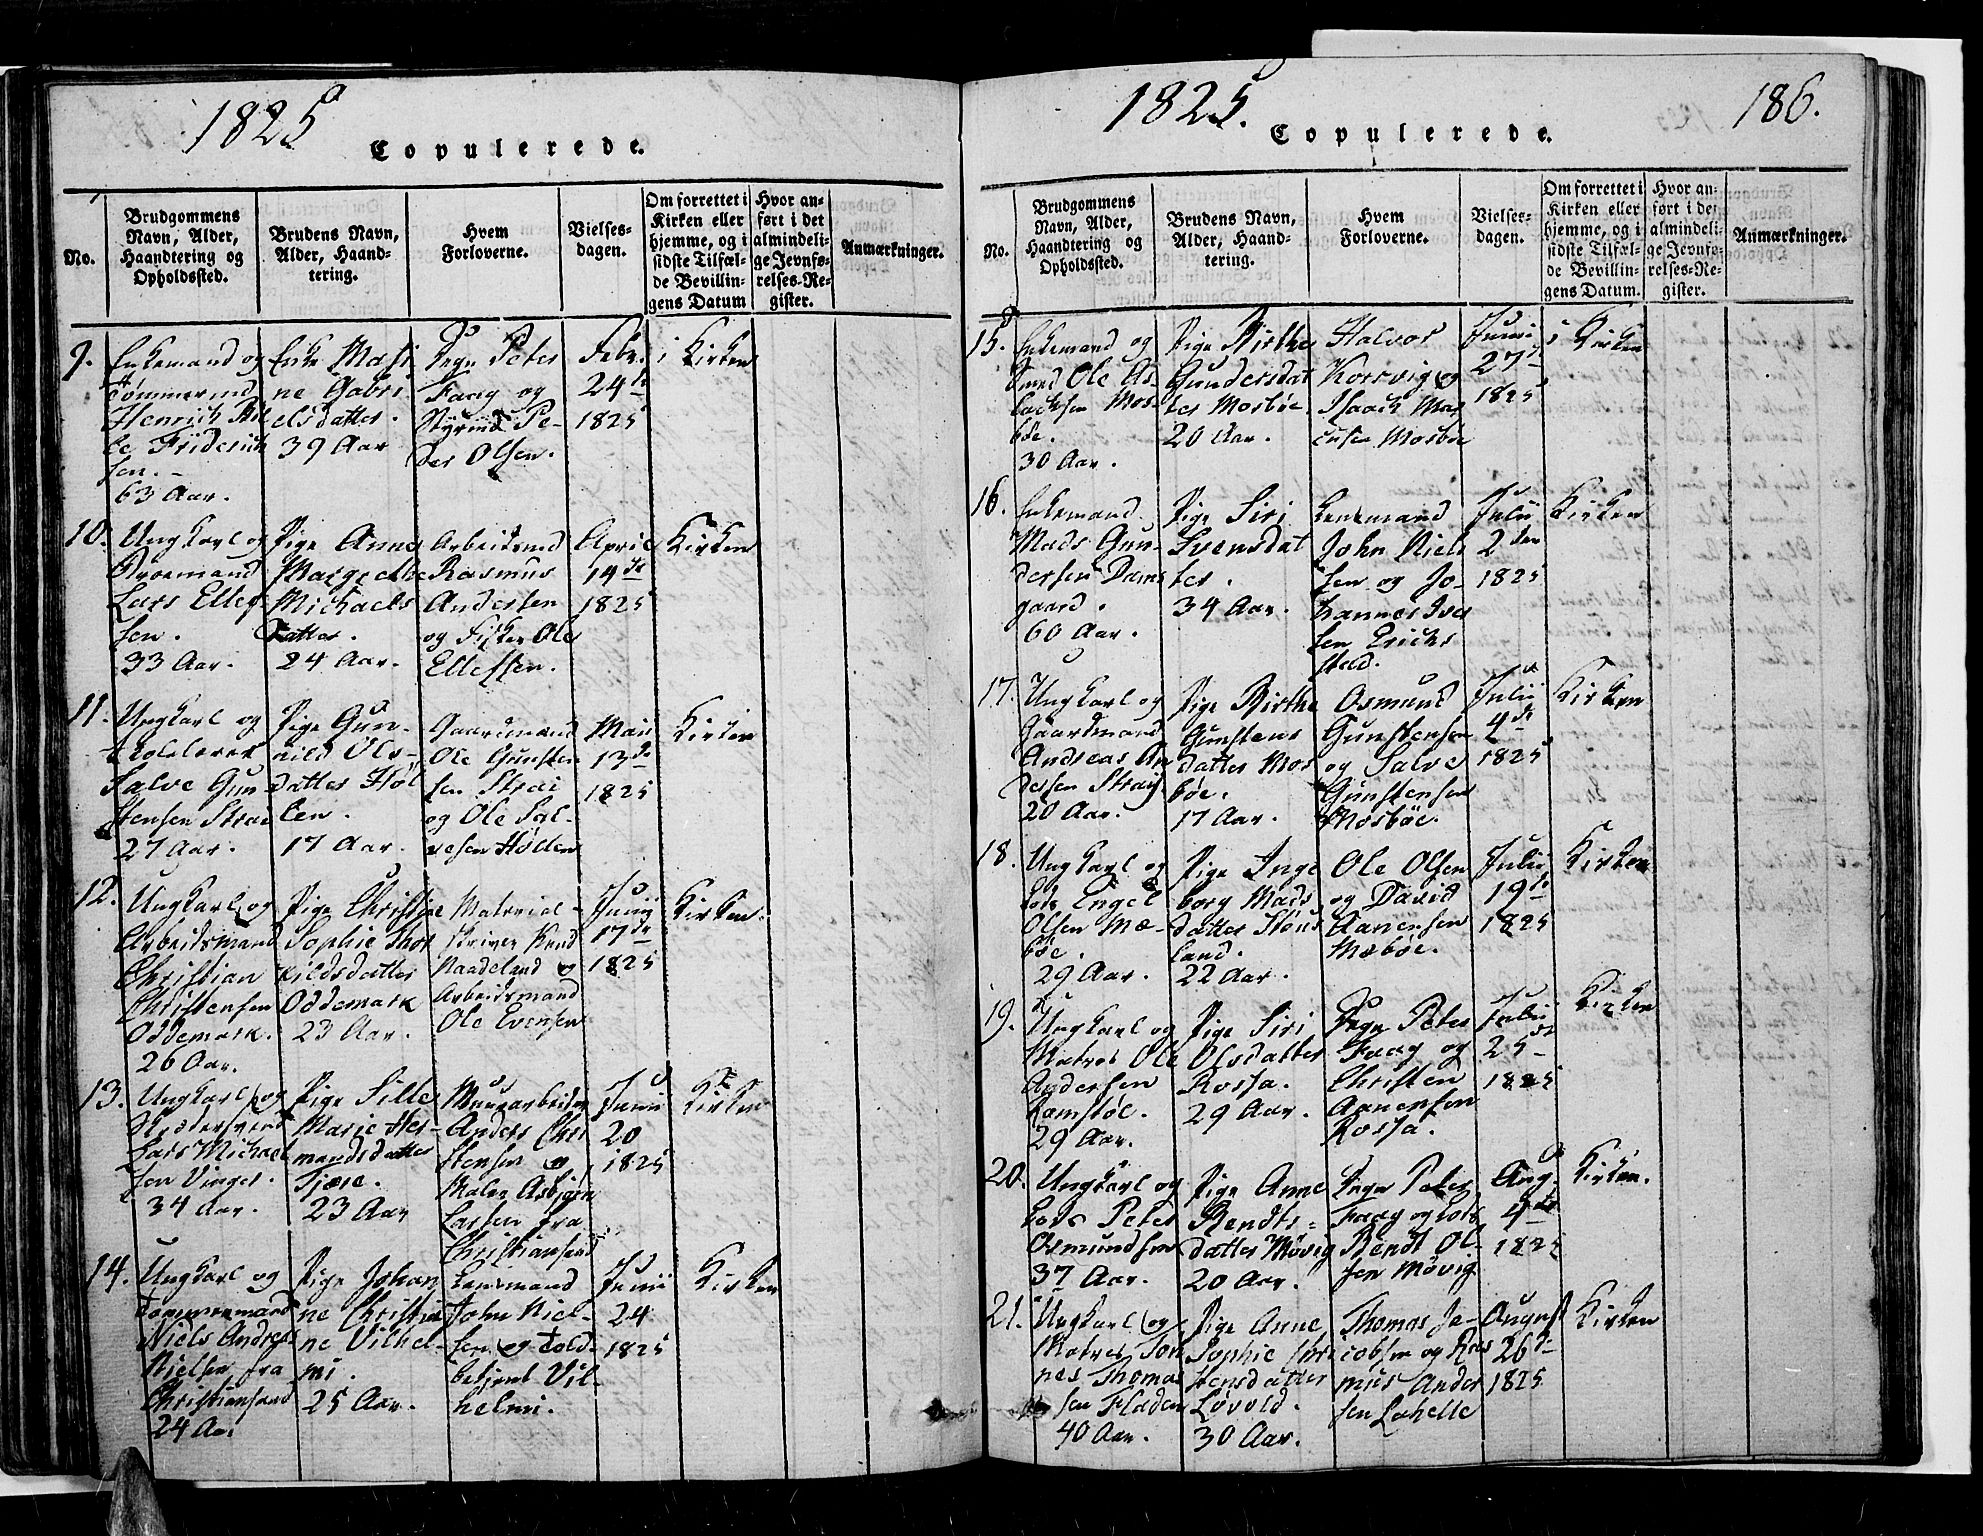 1825
Copulerede.
No.
Brudgommens
Navn, Alder,
Haandtering og
Opholdssted.
Brudens Navn,
Alder, Haand-
tering.
Hvem
Forloverne.
Vielses-
dagen.
Om forrettet i
Kirken eller
hjemme, og i
sidste Tilfæl-
de Bevillin-
gens Datum
Hvor an-
ført i det
almindeli-
ge Jevnfø-
relses-Re-
gister.
Anmærkninger.
9.
Enkemand og
Tømmermd
Henrich
Friderich
sen. -
63 Aar.
Enke Masi
ne Gabri
elsdatter.
39 Aar
Degn Peter
Faag og
Styrmd Pe-
der Olsen.
Febr.
24de
1825
i Kirken
10.
Ungkarl og
Lars Ellef-
sen.
33 Aar.
Pige Anne
Margrethe
Michaels
datter.
24 Aar.
Arbeidsmd
Rasmus
Andersen
og Fisker Ole
Ellefsen.
April
14de
1825
Kirken
11.
Ungkarl og
Salve Gun
stensen Straie
27 Aar.
Pige Gun-
nild Ols-
datter Høl
len.
17 Aar.
Gaardmand
Ole Gunsten
sen Straie
og Ole Sal-
vesen Høllen
Maii
13de
1825
Kirken
12.
Ungkarl og
Arbeidsmand
Christian
Christensen
Oddemark.
26 Aar.
Pige Christine
Sophie Thor
kildsdatter
Oddemark
23 Aar.
Material-
skriver Knud
Naadeland og
Arbeidsmand
Ole Evensen
Junij
17de
1825
Kirken.
13.
Ungkarl og
Lars Michael
sen Vinger.
34 Aar.
Pige Sille
Marie Her-
mandsdatter
Tjære.
23 Aar
Muurarbeider
Anders Chri
stensen og
Maler Asbjørn
Larsen fra
Christiansand
Junii
20
1825
Kirken
14.
Ungkarl og
Tømmermand
Niels Andreas
Nielsen fra
Christiansand
24 Aar
Pige Johan
ne Christia
ne Vilhel-
mi.
25 Aar.
Lensmand
John Niel-
sen og Told-
betjent Vil-
helmi.
Junii
24
1825
Kirken
1825.
Copulerede.
186.
No.
Brudgommens
Navn, Alder,
Haandtering og
Opholdssted.
Brudens Navn,
Alder, Haand-
tering.
Hvem
Forloverne.
Vielses-
dagen.
Om forrettet i
Kirken eller
hjemme, og i
sidste Tilfæl-
de Bevillin-
gens Datum.
Hvor an-
ført i det
almindeli-
ge Jevnfø-
relses-Re-
gister.
Anmærkninger.
15.
Enkemand og
Smed Ole As-
lachsen Mos-
bøe.
30 Aar.
Pige Birthe
Gundersdat
ter Mosbøe.
20 Aar.
Halvor
Korsvig og
Isaach Mar
cusen Mosbøe
Junii
27de
1825
i Kirken
16.
Enkemand
Mads Gun-
dersen Dams
gaard.
60 Aar.
Pige Siri
Svensdat
ter.
34 Aar.
Lensmand
John Niel
sen og Jo-
hannes Iver
sen Erichs
stad.
Julii
2den
1825
Kirken
17.
Ungkarl og
Gaardmand
Andreas An
dersen Straij.
20 Aar.
Pige Birthe
Gunstens
datter Mos
bøe.
17 Aar.
Osmund
Gunstensen
og Salve
Gunstensen
Mosbøe.
Julii
4de
1825
Kirken
18.
Ungkarl og
Lods Engel
Olsen Mæ-
bøe.
29 Aar.
Pige Inge
borg Mads
datter Støus
land.
22 Aar.
Ole Olsen
og David
Aanensen
Mæbøe.
Julii
19de
1825
Kirken
19.
Ungkarl og
Matros Ole
Andersen
Ramsøe.
29 Aar.
Pige Siri
Olsdatter
Rossa.
29 Aar.
Degn Peter
Faag og
Christen
Aanensen
Rossa.
Julii
25de
1825
Kirken
20.
Ungkarl og
Lods Peter
Osmundsen
37 Aar.
Pige Anne
Bendts-
datter Møvig
20 Aar.
Degn Peter
Faag og Lods
Bendt Ol-
sen Møvig
Aug.
4de
1825
Kirken.
21.
Ungkarl og
Matros Tør
nes Thomas
sen Fladen
40 Aar.
Pige Anne
Sophie Chri
stensdatter
Løvold.
30 Aar.
Thomas Ja-
cobsen og Ras
mus Ander
sen Lahelle
August
26de
1825
Kirken